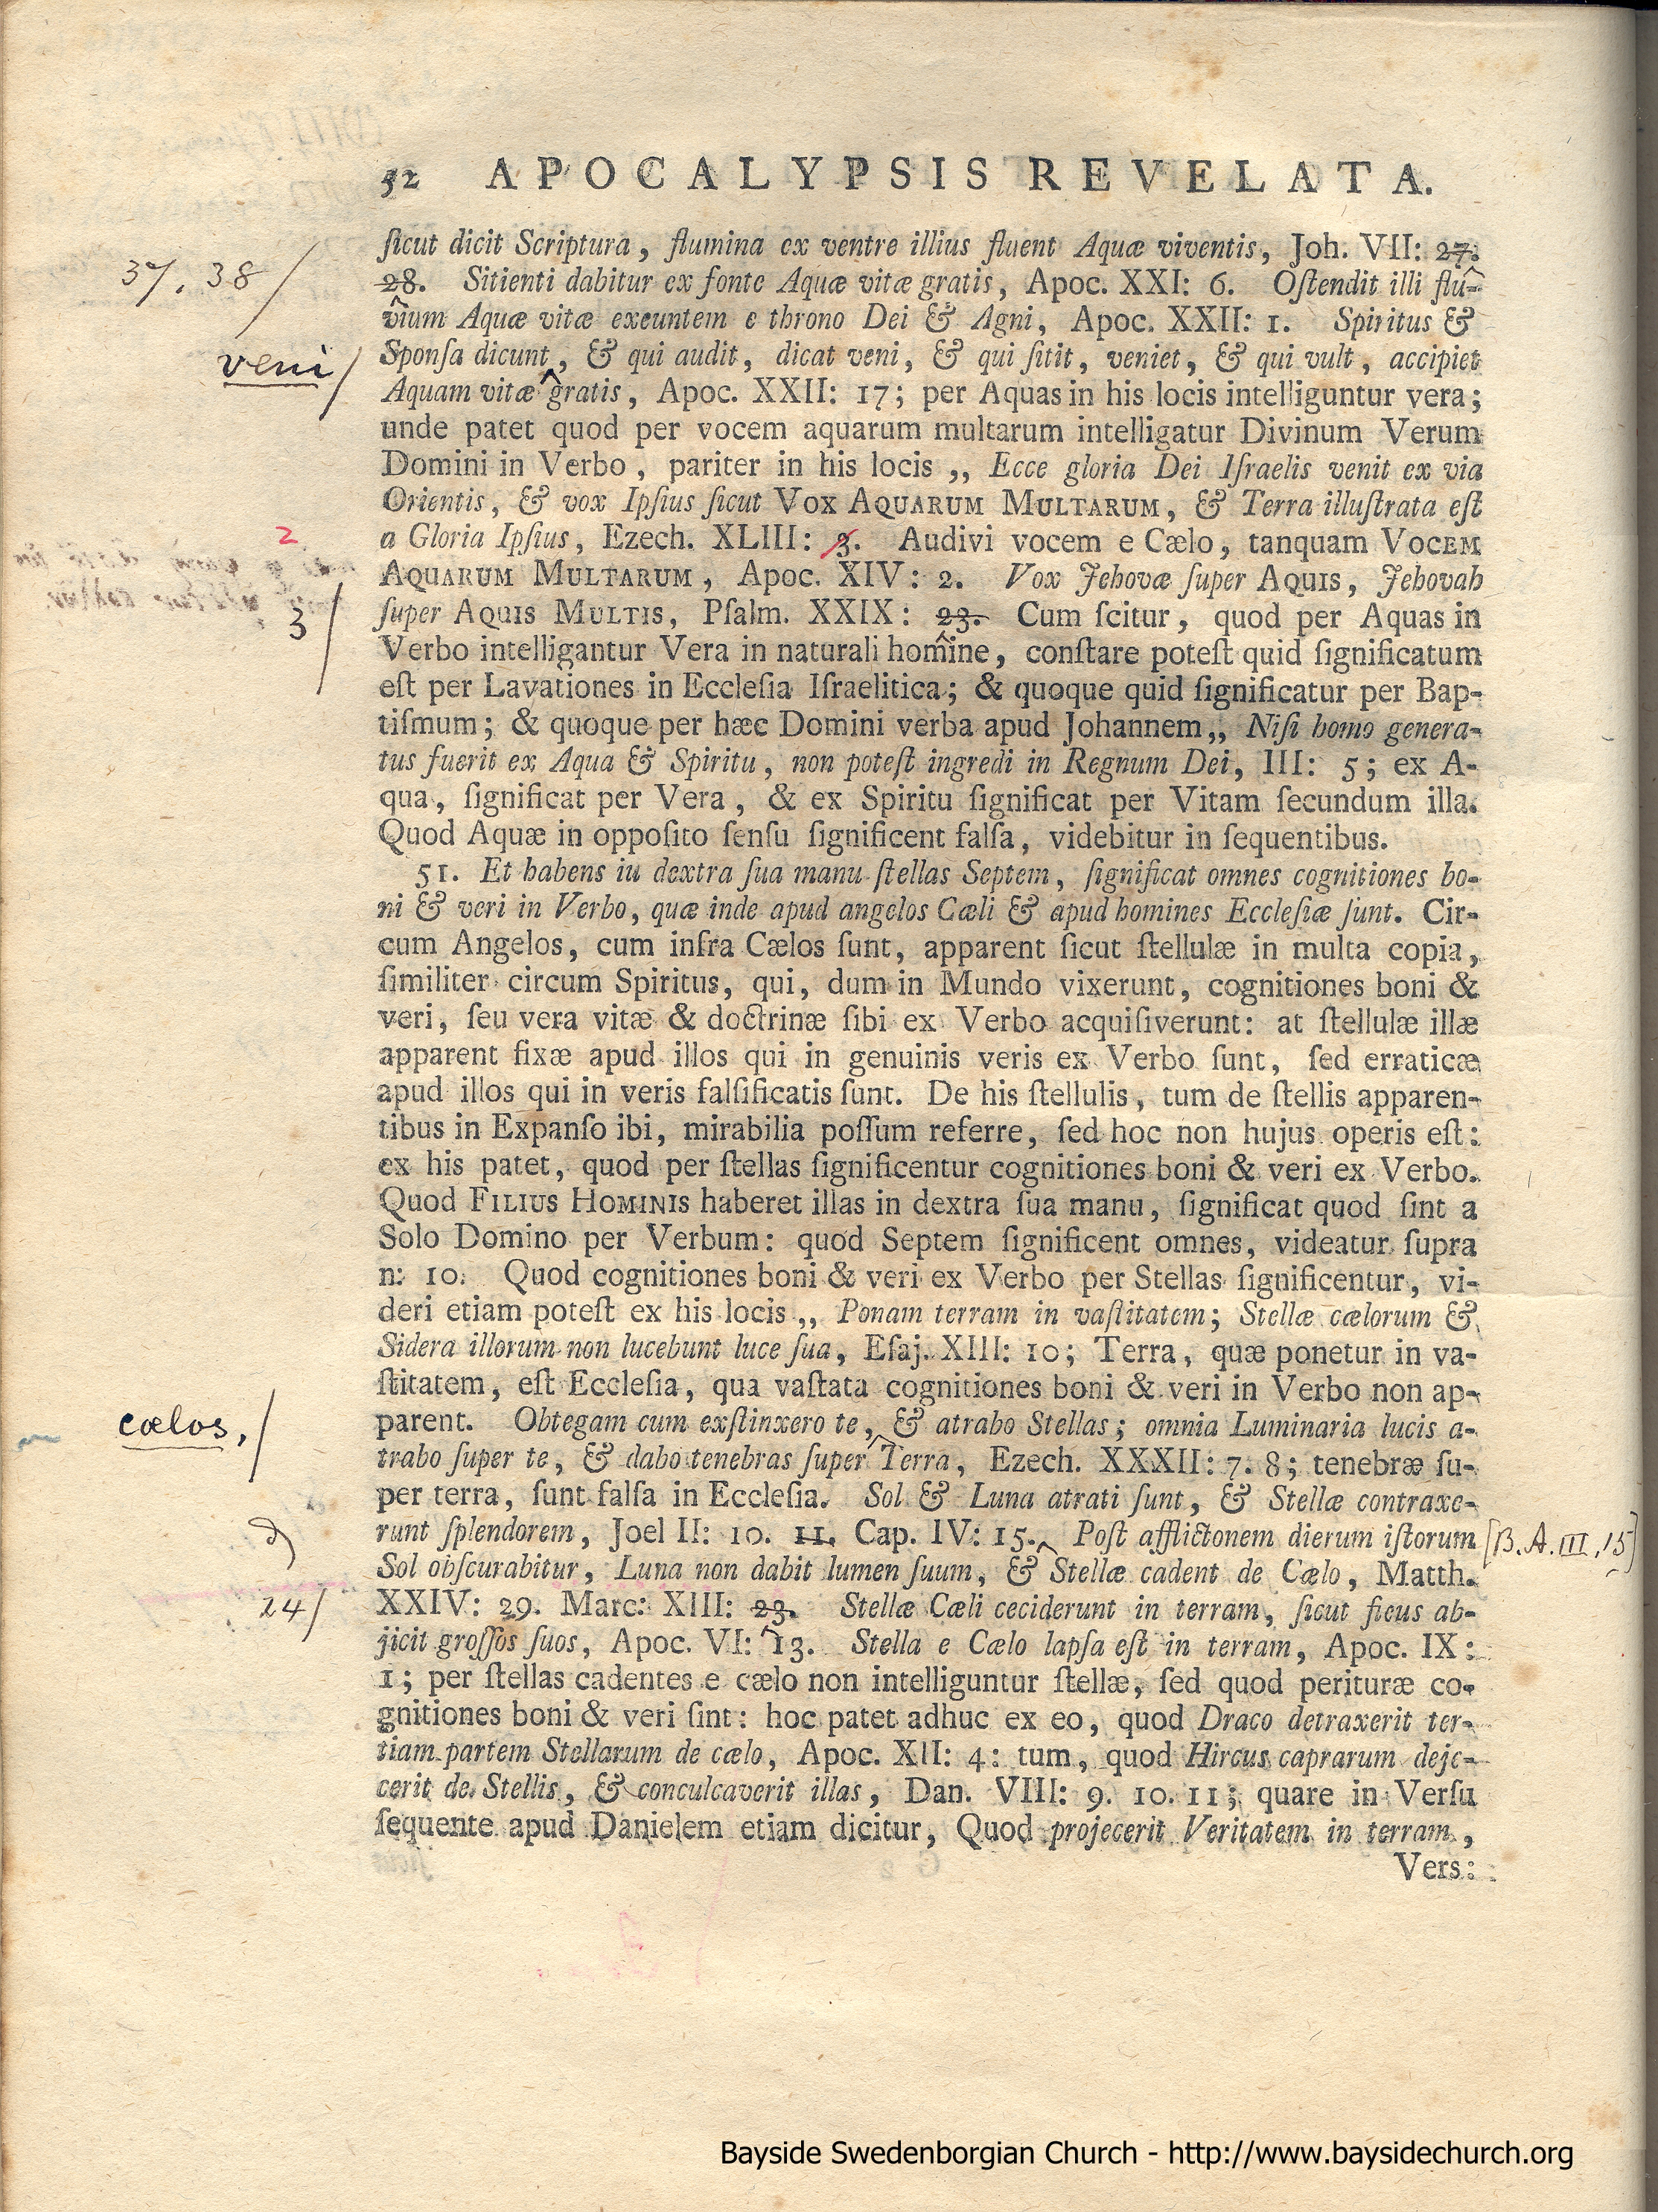 52 APOCALYPSIS REVELATA.
ſicut dicit Scriptura, flumina ex ventre illius fluent Aquæ viventis, Joh. VII: 27.
37. 38 /
28. Sitienti dabitur ex fonte Aquæ vitæ gratis, Apoc. XXI: 6. Oſtendit illi flu-
vium Aquæ vitæ exeuntem e throno Dei & Agni, Apoc. XXII: 1. Spiritus &
veni /
Sponſa dicunt, & qui audit, dicat veni, & qui ſitit, veniet, & qui vult, accipiet
Aquam vitæ gratis, Apoc. XXII: 17; per Aquas in his locis intelliguntur vera;
unde patet quod per vocem aquarum multarum intelligatur Divinum Verum
Domini in Verbo, pariter in his locis ,, Ecce gloria Dei Iſraelis venit ex via
Orientis, & vox Ipſius ſicut VOX AQUARUM MULTARUM, & Terra illuſtrata eſt
2
a Gloria Ipſius, Ezech. XLIII: 3. Audivi vocem e Cælo, tanquam VOCEM
AQUARUM MULTARUM, Apoc. XIV: 2. Vox Jehovæ ſuper AQUIS, Jehovah
3 /
ſuper AQUIS MULTIS, Pſalm. XXIX: 23. Cum ſcitur, quod per Aquas in
Verbo intelligantur Vera in naturali homine, conſtare poteſt quid ſignificatum
eſt per Lavationes in Eccleſia Iſraelitica; & quoque quid ſignificatur per Bap-
tiſmum; & quoque per hæc Domini verba apud Johannem,, Niſi homo genera-
tus fuerit ex Aqua & Spiritu, non poteſt ingredi in Regnum Dei, III: 5; ex A-
qua, ſignificat per Vera, & ex Spiritu ſignificat per Vitam ſecundum illa.
Quod Aquæ in oppoſito ſenſu ſignificent falſa, videbitur in ſequentibus.
51. Et habens iu dextra ſua manu ſtellas Septem, ſignificat omnes cognitiones bo-
ni & veri in Verbo, quæ inde apud angelos Cæli & apud homines Eccleſiæ ſunt. Cir-
cum Angelos, cum infra Cælos ſunt, apparent ſicut ſtellulæ in multa copia,
ſimiliter circum Spiritus, qui, dum in Mundo vixerunt, cognitiones boni &
veri, ſeu vera vitæ & doctrinæ ſibi ex Verbo acquiſiverunt: at ſtellulæ illæ
apparent fixæ apud illos qui in genuinis veris ex Verbo ſunt, ſed erraticæ
apud illos qui in veris falſificatis ſunt. De his ſtellulis, tum de ſtellis apparen-
tibus in Expanſo ibi, mirabilia poſſum referre, ſed hoc non hujus operis eſt:
ex his patet, quod per ſtellas ſignificentur cognitiones boni & veri ex Verbo.
Quod FILIUS HOMINIS haberet illas in dextra ſua manu, ſignificat quod ſint a
Solo Domino per Verbum: quod Septem ſignificent omnes, videatur ſupra
n: 10. Quod cognitiones boni & veri ex Verbo per Stellas ſignificentur, vi-
deri etiam poteſt ex his locis ,, Ponam terram in vaſtitatem; Stellæ cælorum &
Sidera illorum non lucebunt luce ſua, Eſaj. XIII: 10; Terra, quæ ponetur in va-
ſtitatem, eſt Eccleſia, qua vaſtata cognitiones boni & veri in Verbo non ap-
cælos, /
parent. Obtegam cum exſtinxero te, & atrabo Stellas; omnia Luminaria lucis a-
trabo ſuper te, & dabo tenebras ſuper Terra, Ezech. XXXII: 7. 8; tenebræ ſu-
per terra, ſunt falſa in Eccleſia. Sol & Luna atrati ſunt, & Stellæ contraxe-
runt ſplendorem, Joel II: 10. 11. Cap. IV: 15. Poſt afflictonem dierum iſtorum
[B.A. III, 15]
Sol obſcurabitur, Luna non dabit lumen ſuum, & Stellæ cadent de Cælo, Matth.
24 /
XXIV: 29. Marc: XIII: 23. Stellæ Cæli ceciderunt in terram, ſicut ficus ab-
jicit groſſos ſuos, Apoc. VI: 13. Stella e Cælo lapſa eſt in terram, Apoc. IX:
1; per ſtellas cadentes e cælo non intelliguntur ſtellæ, ſed quod perituræ co-
gnitiones boni & veri ſint: hoc patet adhuc ex eo, quod Draco detraxerit ter-
tiam partem Stellarum de cælo, Apoc. XII: 4: tum, quod Hircus caprarum deje-
cerit de Stellis, & conculcaverit illas, Dan. VIII: 9. 10. 11; quare in Verſu
ſequente apud Danielem etiam dicitur, Quod projecerit Veritatem in terram,
Vers:
Bayside Swedenborgian Church - http://www.baysidechurch.org